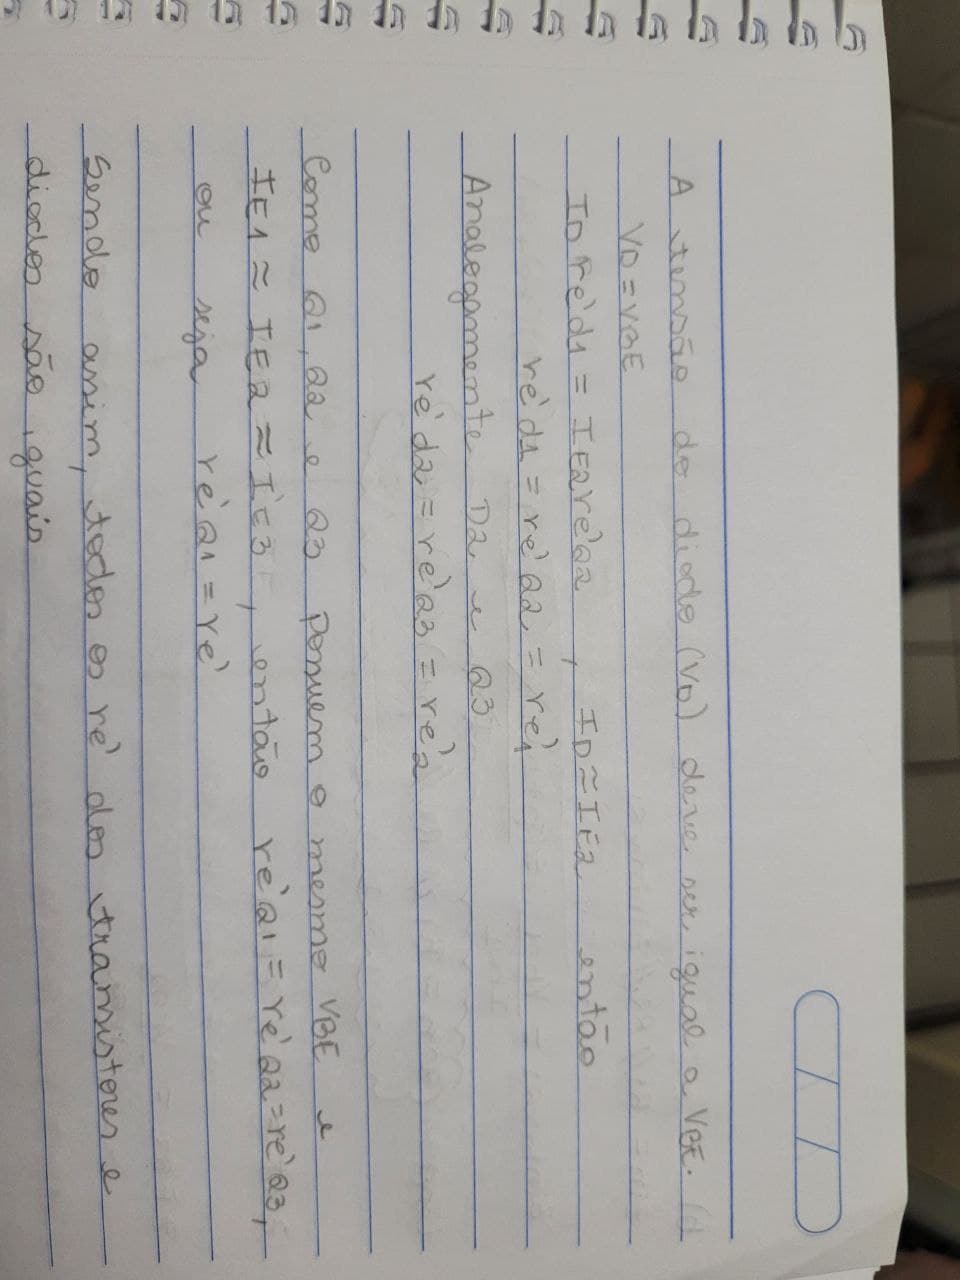 A tensão do diodo (VD) deve ser igual a VBE.
VD = VBE
ID re'd1 = IE2 re'Q2 , ID ≃ IE2 então
re'd1 = re'Q2 = re'1
Analogamente D2 e Q3
re'd2 = re'Q3 = re'2
Como Q1, Q2 e Q3 possuem o mesmo VBE e
IE1 ≈ IE2 ≈ IE3 , então re'Q1 = re'Q2 = re'Q3,
ou seja re'Q1 = re'
Sendo assim, todos os re' dos transistores e
diodos são iguais